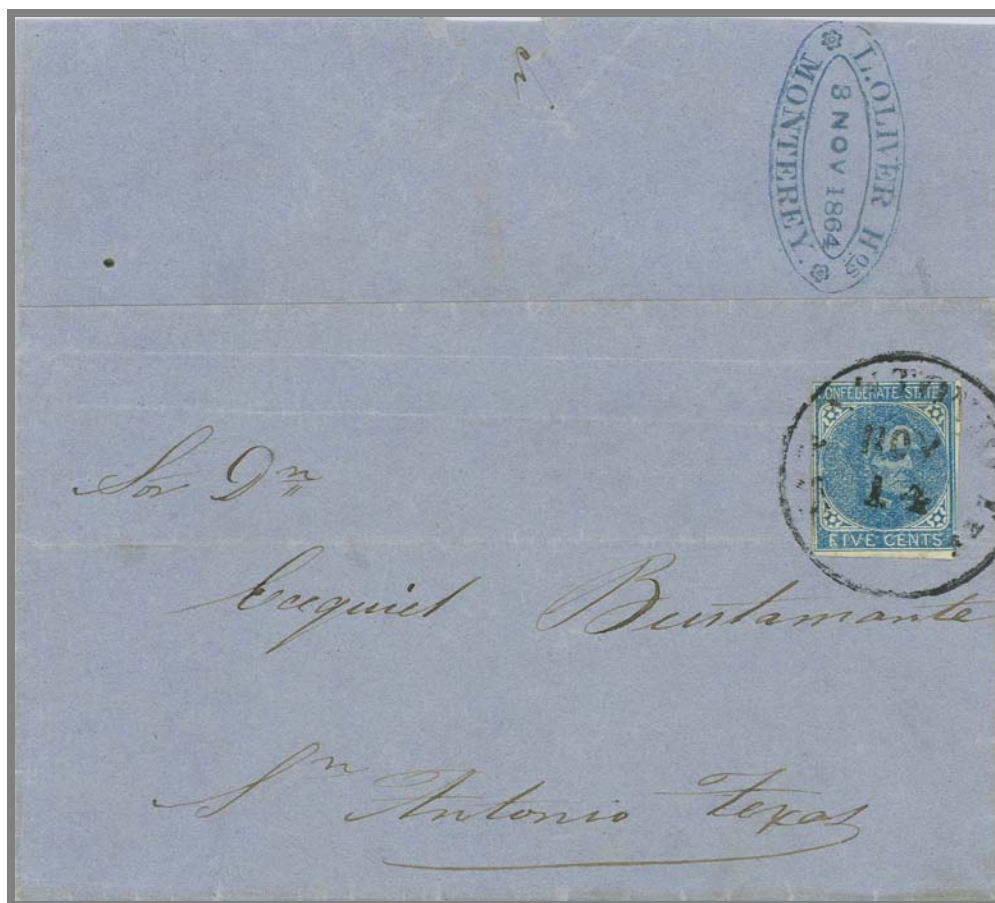 L. OLIVER Hos
8 NOV 1864
MONTEREY.
CONFEDERATE STATES
NOV
14
FIVE CENTS
Sor Dn
Ecequiel Bustamante
Sn Antonio Texas